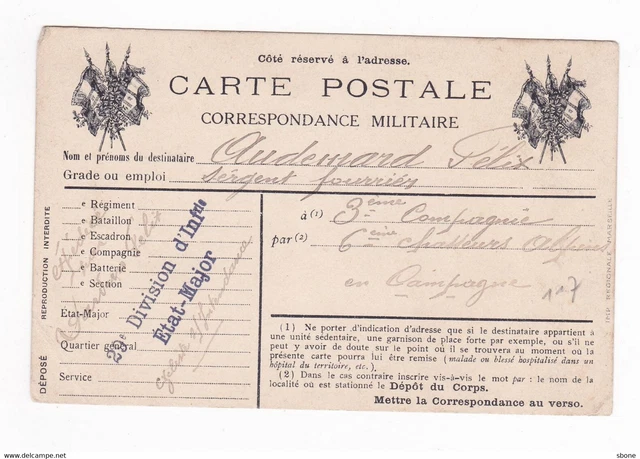 Côté réservé à l'adresse.
CARTE POSTALE
CORRESPONDANCE MILITAIRE
Nom et prénoms du destinataire Audemard Félix
Grade ou emploi Sergent fourrier
REPRODUCTION INTERDITE
DÉPOSÉ
e Régiment
e Bataillon
e Escadron
e Compagnie
e Batterie
e Section
État-Major
Quartier général
Service
Division d'Inf
État-Major
à (1) 3ème Compagnie
par (2) 6ème chasseurs alpins
en Campagne
117
IMP. RÉGIONALE, MARSEILLE
(1) Ne porter d'indication d'adresse que si le destinataire appartient à
une unité sédentaire, une garnison de place forte par exemple, ou s'il ne
peut y avoir de doute sur le point où il se trouvera au moment où la
présente carte pourra lui être remise (malade ou blessé hospitalisé dans un
hôpital du territoire, etc.).
(2) Dans le cas contraire inscrire vis-à-vis le mot par : le nom de la
localité où est stationné le Dépôt du Corps.
Mettre la Correspondance au verso.
delcampe.net
sbone